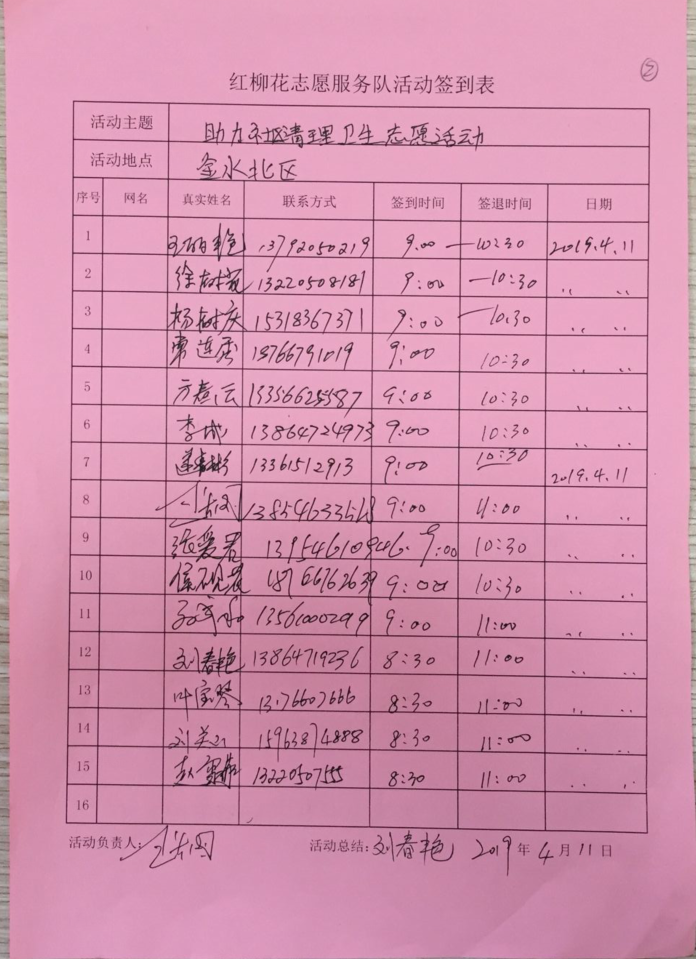 ②
红柳花志愿服务队活动签到表
活动主题 助力社区清理卫生志愿活动
活动地点 金水北区
序号 网名 真实姓名 联系方式 签到时间 签退时间 日期
1 王丽艳 13792050219 9:00 —10:30 2019.4.11
2 徐树苑 13220508181 9:00 —10:30 〃 〃
3 杨树庆 15318367371 9:00 —10:30 〃 〃
4 常连 18766791019 9:00 10:30 〃 〃
5 方 13356625587 9:00 10:30 〃 〃
6 李成 13864724973 9:00 10:30 〃 〃
7 13361512913 9:00 10:30 2019.4.11
8 9:00 11:00 〃 〃
9 张爱君 13954610946 9:00 10:30 〃 〃
10 18766762639 9:00 10:30 〃 〃
11 13561000299 9:00 11:00 〃 〃
12 刘春艳 13864719236 8:30 11:00 〃 〃
13 叶宝琴 8:30 11:00 〃 〃
14 刘美 15963874888 8:30 11:00 〃 〃
15 赵 13220507555 8:30 11:00 〃 〃
16
活动负责人: 活动总结:刘春艳 2019年4月11日